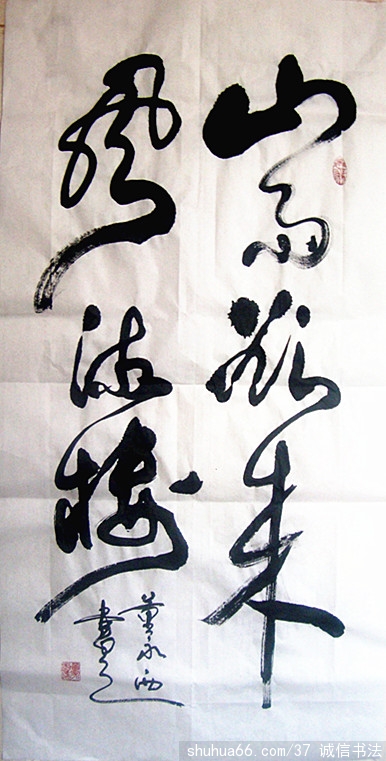 山雨欲来
风满楼
董永西
书
shuhua66.com/37 诚信书法